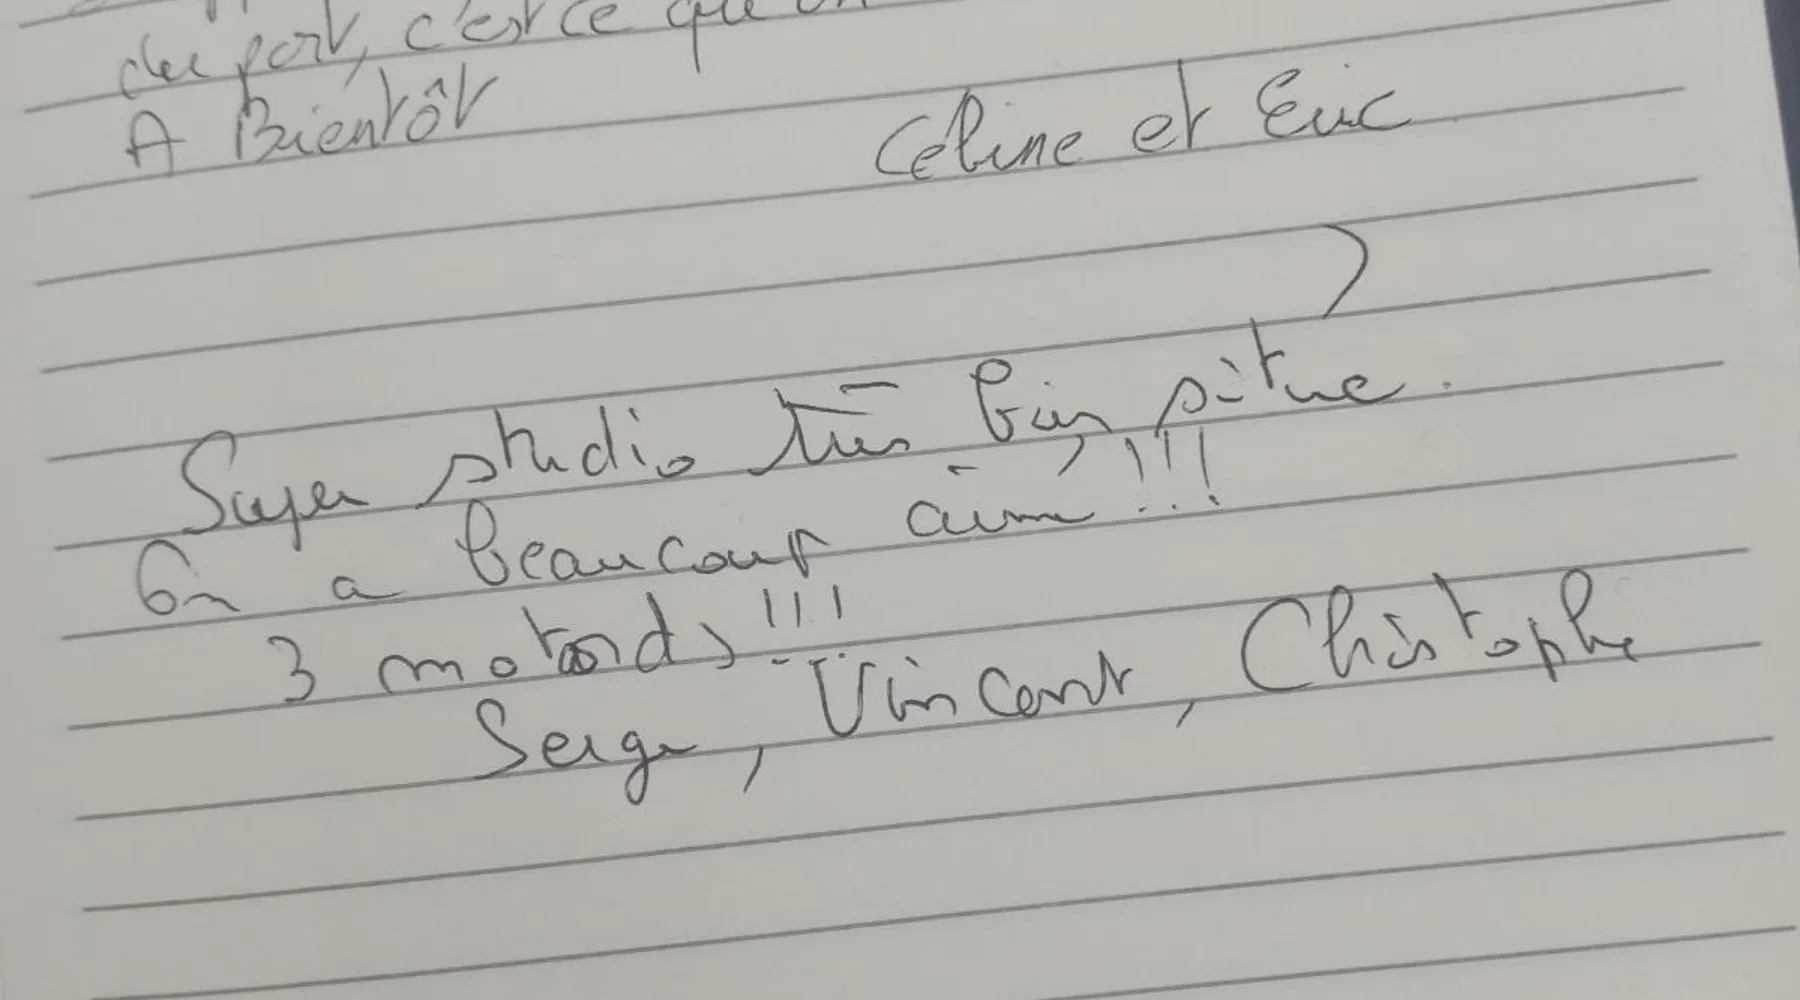 du port, c'est ce qu'on
A Bientôt
Céline et Eric
Super studio très bien situé.
On a beaucoup aimé !!!
3 motards !!!
Serge, Vincent, Christophe